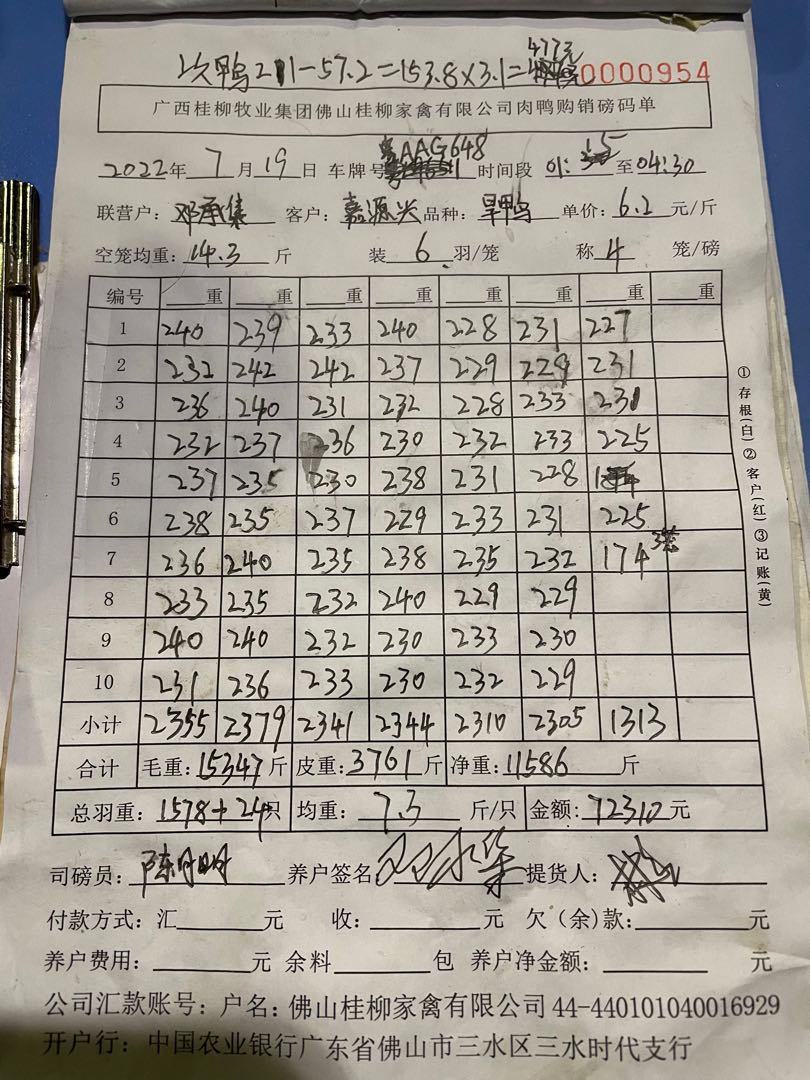 次鸭211-57.2=153.8×3.1=477元
0000954
广西桂柳牧业集团佛山桂柳家禽有限公司肉鸭购销磅码单
2022年7月19日 车牌号 粤AAG648 时间段 01:15至04:30
联营户:邓承集 客户:嘉源兴 品种:旱鸭 单价:6.2元/斤
空笼均重:14.3斤 装6羽/笼 称4笼/磅
编号 重 重 重 重 重 重 重 重
1 240 239 233 240 228 231 227
2 232 242 242 237 229 229 231
3 236 240 231 232 228 233 231
4 232 237 236 230 232 233 225
5 237 235 230 238 231 228
6 238 235 237 229 233 231 225
7 236 240 235 238 235 232 174 3笼
8 233 235 232 240 229 229
9 240 240 232 230 233 230
10 231 236 233 230 232 229
小计 2355 2379 2341 2344 2310 2305 1313
合计 毛重:15347斤 皮重:3761斤 净重:11586斤
总羽重:1578+24只 均重:7.3斤/只 金额:72310元
司磅员:陈明 养户签名:邓承集 提货人:
付款方式:汇 元 收: 元 欠(余)款: 元
养户费用: 元 余料 包 养户净金额: 元
公司汇款账号:户名:佛山桂柳家禽有限公司44-440101040016929
开户行:中国农业银行广东省佛山市三水区三水时代支行
①存根(白)②客户(红)③记账(黄)